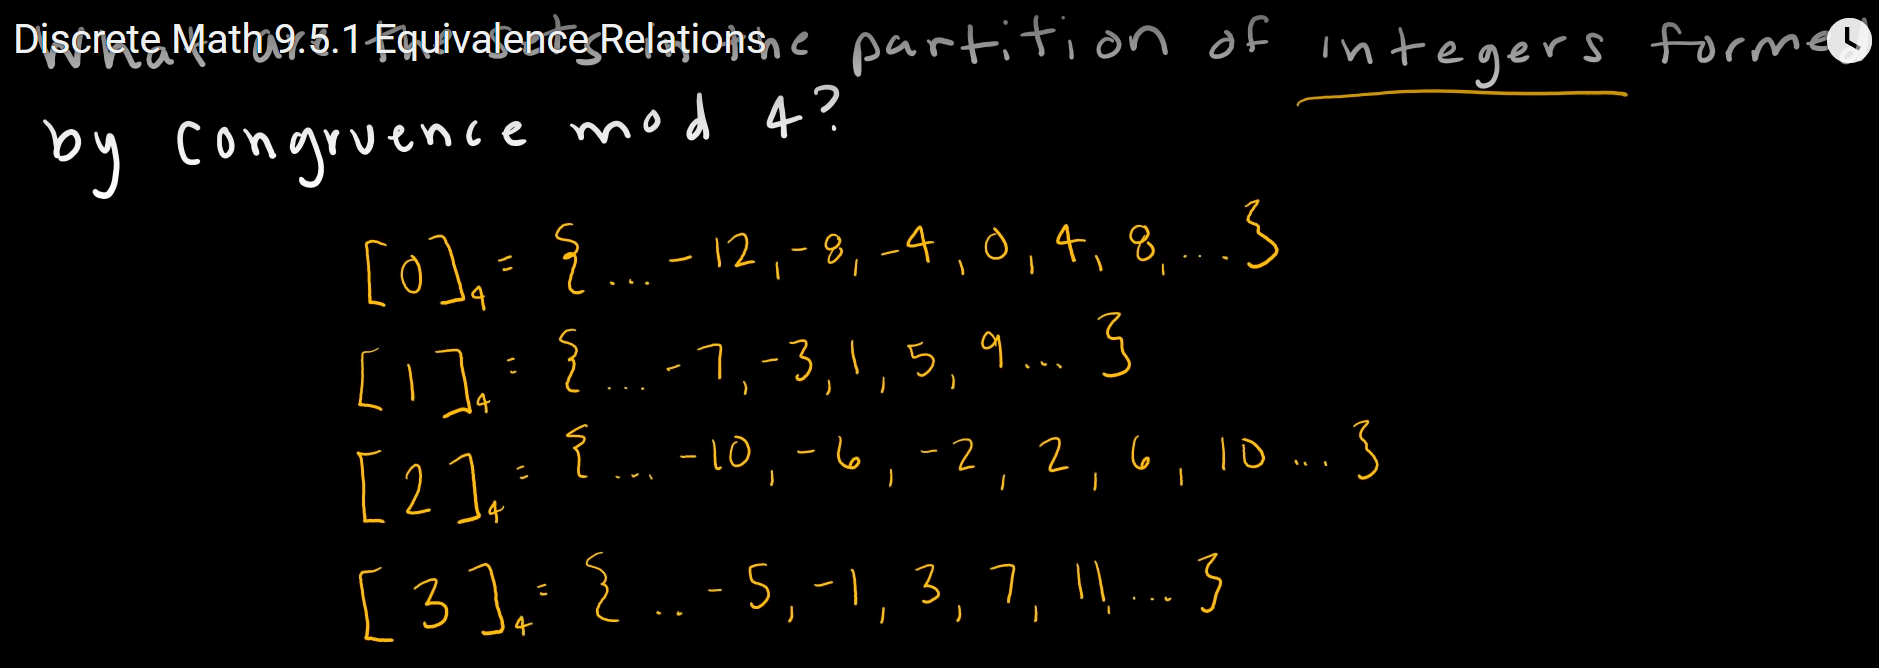 Discrete Math 9.5.1 Equivalence Relations
What are the sets in the partition of integers formed
by congruence mod 4?
[0]₄ = {... -12, -8, -4, 0, 4, 8, ...}
[1]₄ = {... -7, -3, 1, 5, 9 ...}
[2]₄ = {... -10, -6, -2, 2, 6, 10 ...}
[3]₄ = {.. -5, -1, 3, 7, 11, ...}